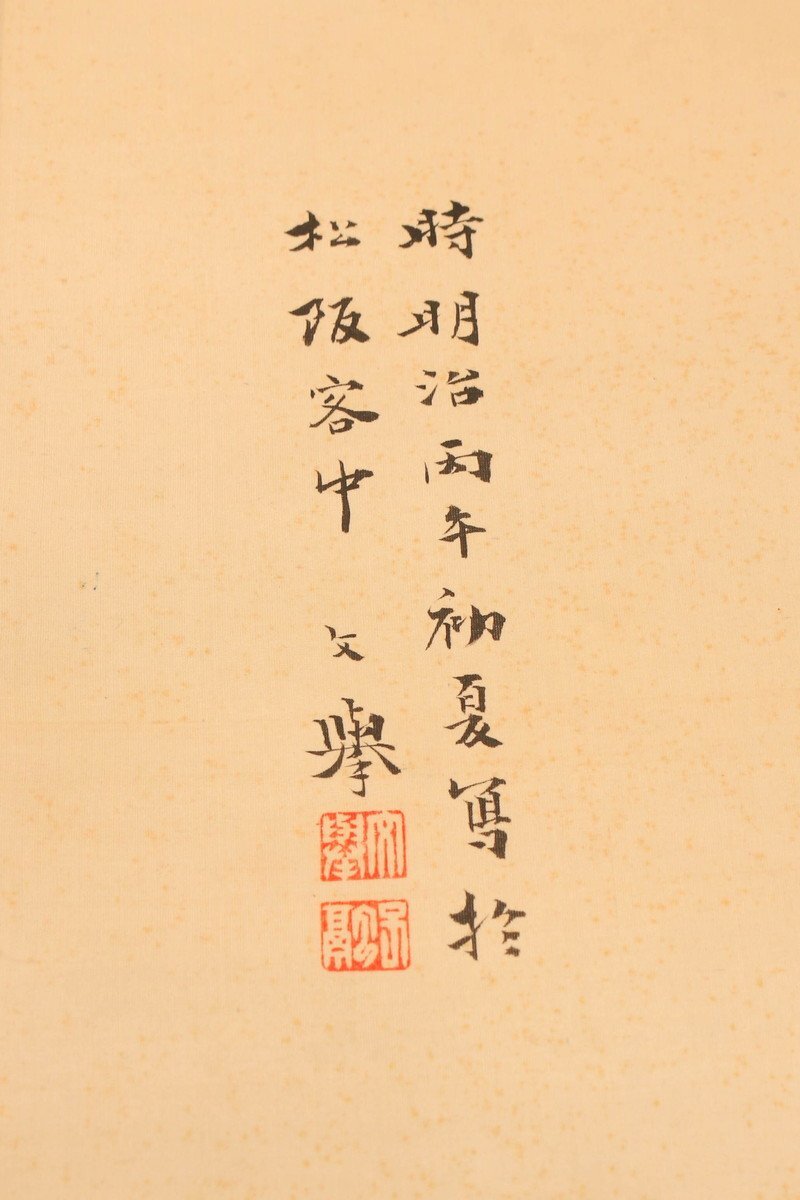 時明治丙午初夏寫於
松阪客中 文擧
文擧